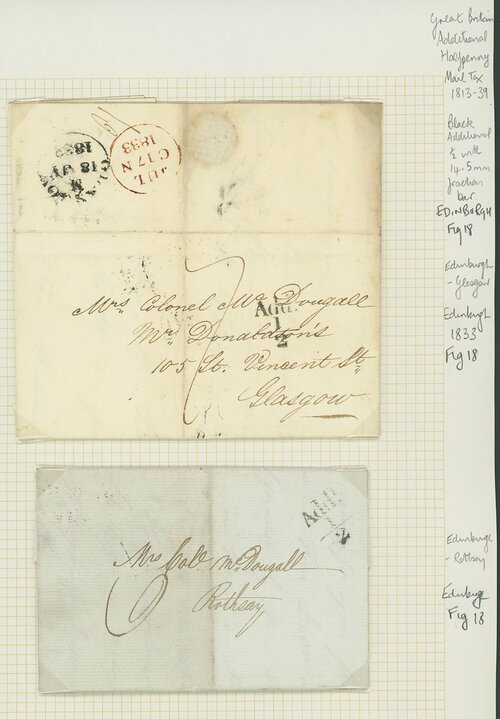 Great Britain
Additional
Halfpenny
Mail Tax
1813-39
Black
Additional
½ with
14.5mm
fraction
bar
EDINBURGH
Fig 18
Edinburgh
- Glasgow
Edinburgh
1833
Fig 18
JUL
C 17 N
1833
M
18 JY
1833
7
Mrs. Colonel Mc Dougall
Addl.
1
2
Mr. Donaldson's
105 St. Vincent St.
Glasgow
Addl.
1
2
Mrs Coll. McDougall
6
Rothsay
Edinburgh
- Rothsay
Fig 18